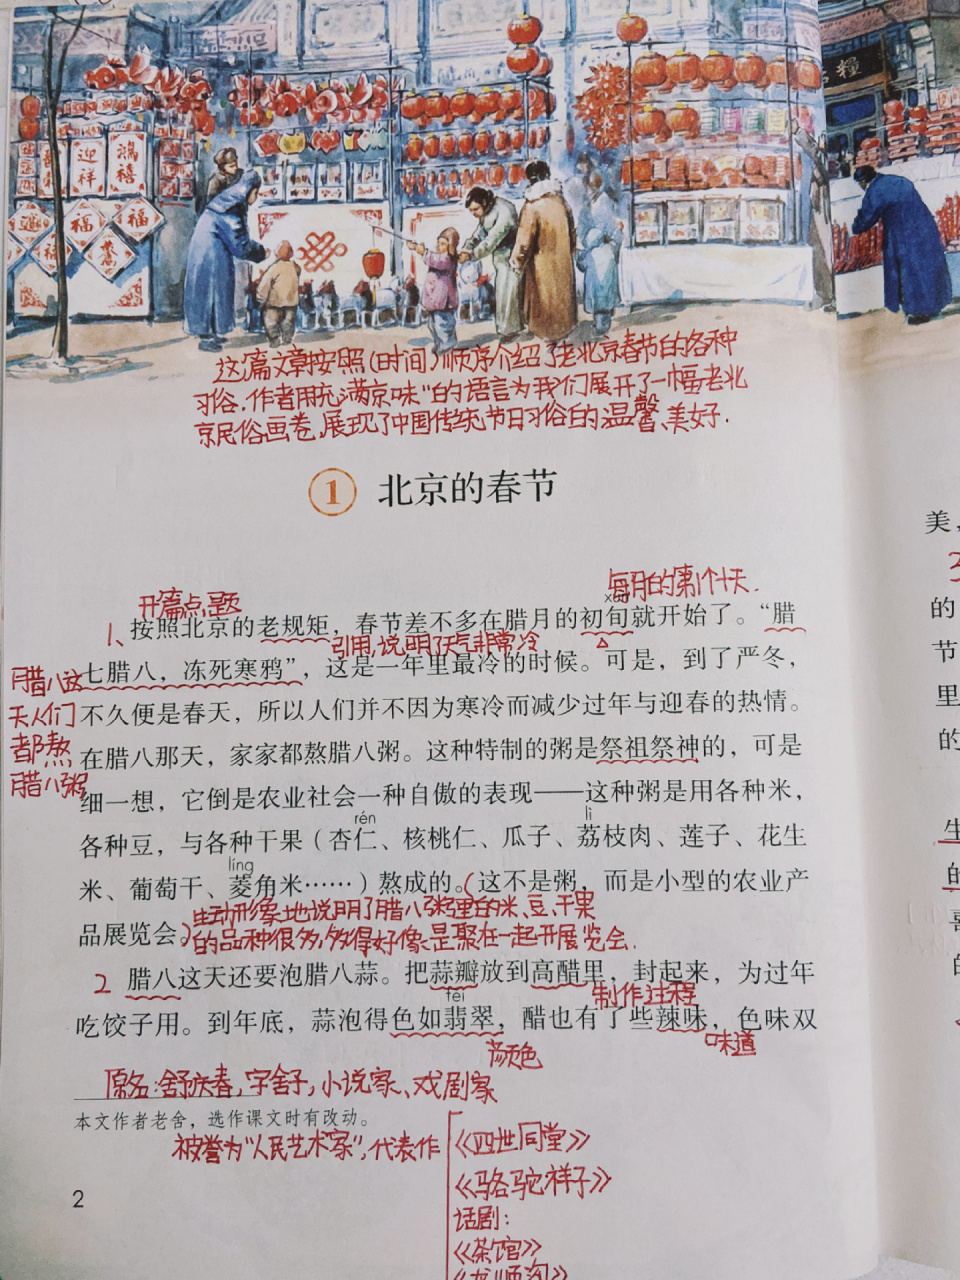 糧
迎祥
鴻禧
福
福
福
这篇文章按照(时间)顺序介绍了老北京春节的各种
习俗.作者用充满京味"的语言为我们展开了一幅老北
京民俗画卷,展现了中国传统节日习俗的温馨、美好.
1 北京的春节
开篇点题
每月的第1个十天.
xún
1、按照北京的老规矩，春节差不多在腊月的初旬就开始了。“腊
引用,说明了天气非常冷
七腊八，冻死寒鸦”，这是一年里最冷的时候。可是，到了严冬，
腊八这
天人们
都熬
腊八粥
不久便是春天，所以人们并不因为寒冷而减少过年与迎春的热情。
在腊八那天，家家都熬腊八粥。这种特制的粥是祭祖祭神的，可是
细一想，它倒是农业社会一种自傲的表现——这种粥是用各种米，
rén lì
各种豆，与各种干果（杏仁、核桃仁、瓜子、荔枝肉、莲子、花生
líng
米、葡萄干、菱角米……）熬成的。(这不是粥，而是小型的农业产
生动形象地说明了腊八粥里的米、豆、干果
品展览会。)
的品种很多,多得好像是聚在一起开展览会.
2 腊八这天还要泡腊八蒜。把蒜瓣放到高醋里，封起来，为过年
fěi
制作过程
吃饺子用。到年底，蒜泡得色如翡翠，醋也有了些辣味，色味双
颜色
味道
原名:舒庆春,字舍予,小说家、戏剧家
本文作者老舍，选作课文时有改动。
被誉为"人民艺术家",代表作
《四世同堂》
《骆驼祥子》
话剧:
《茶馆》
《龙须沟》
2
美，
的
节
里
的
生
的
喜
的